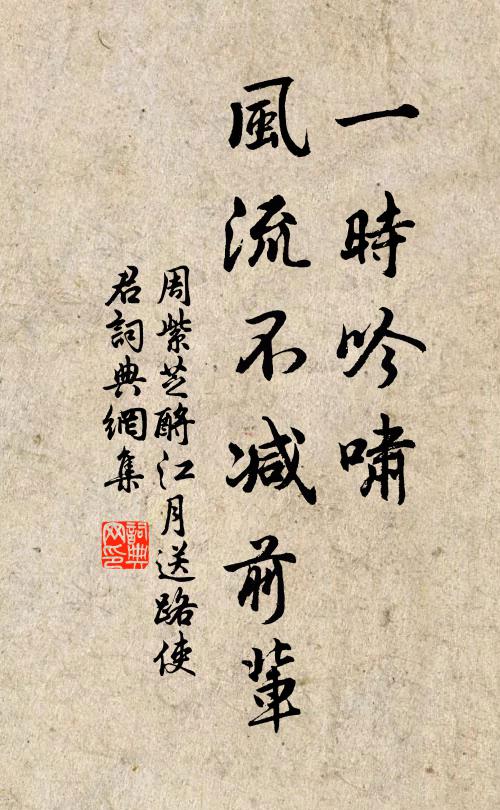 一時吟嘯
風流不减前輩
周紫芝酹江月送路使
君詞典網集
詞典
网印